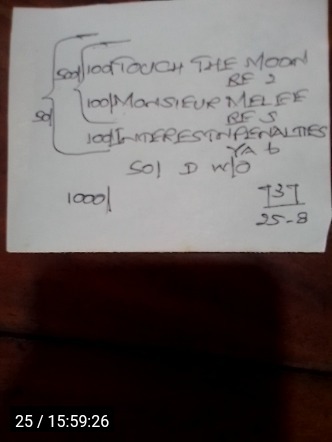 500/ 100/ TOUCH THE MOON
RE 2
50/ 100/ MONSIEUR MELEE
RE 5
100/ INTERESTNPENALTIES
YA 6
50/ D W/O
1000/ 737
25-8
25 / 15:59:26